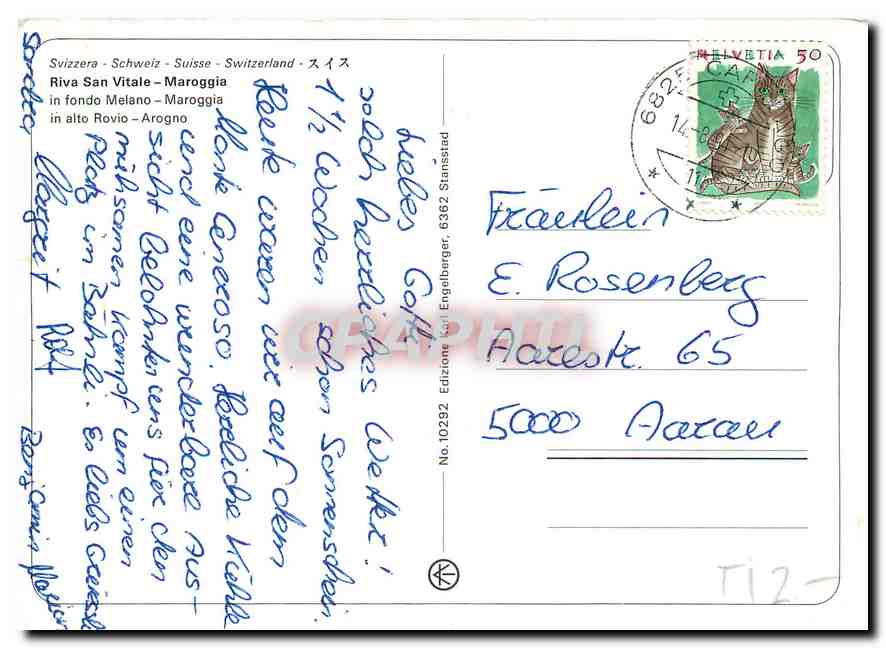 Svizzera - Schweiz - Suisse - Switzerland - スイス
Riva San Vitale – Maroggia
in fondo Melano – Maroggia
in alto Rovio – Arogno
Liebes Gotti
solch herrliches Wetter!
1 1/2 Wochen schon Sonnenschein.
Heute waren wir auf dem
Monte Generoso. Herrliche Kühle
und eine wunderbare Aus-
sicht belohnten uns für den
mühsamen Kampf um einen
Platz im Bähnli. Es liebs Grüessli
Margrit Rolf
Sandra
Benjamin
No. 10292 Edizione Karl Engelberger, 6362 Stansstad
HELVETIA 50
6825 CAP
14.-8
Fräulein
E. Rosenberg
Aarestr. 65
5000 Aarau
TI 2.-
GRAPHTI